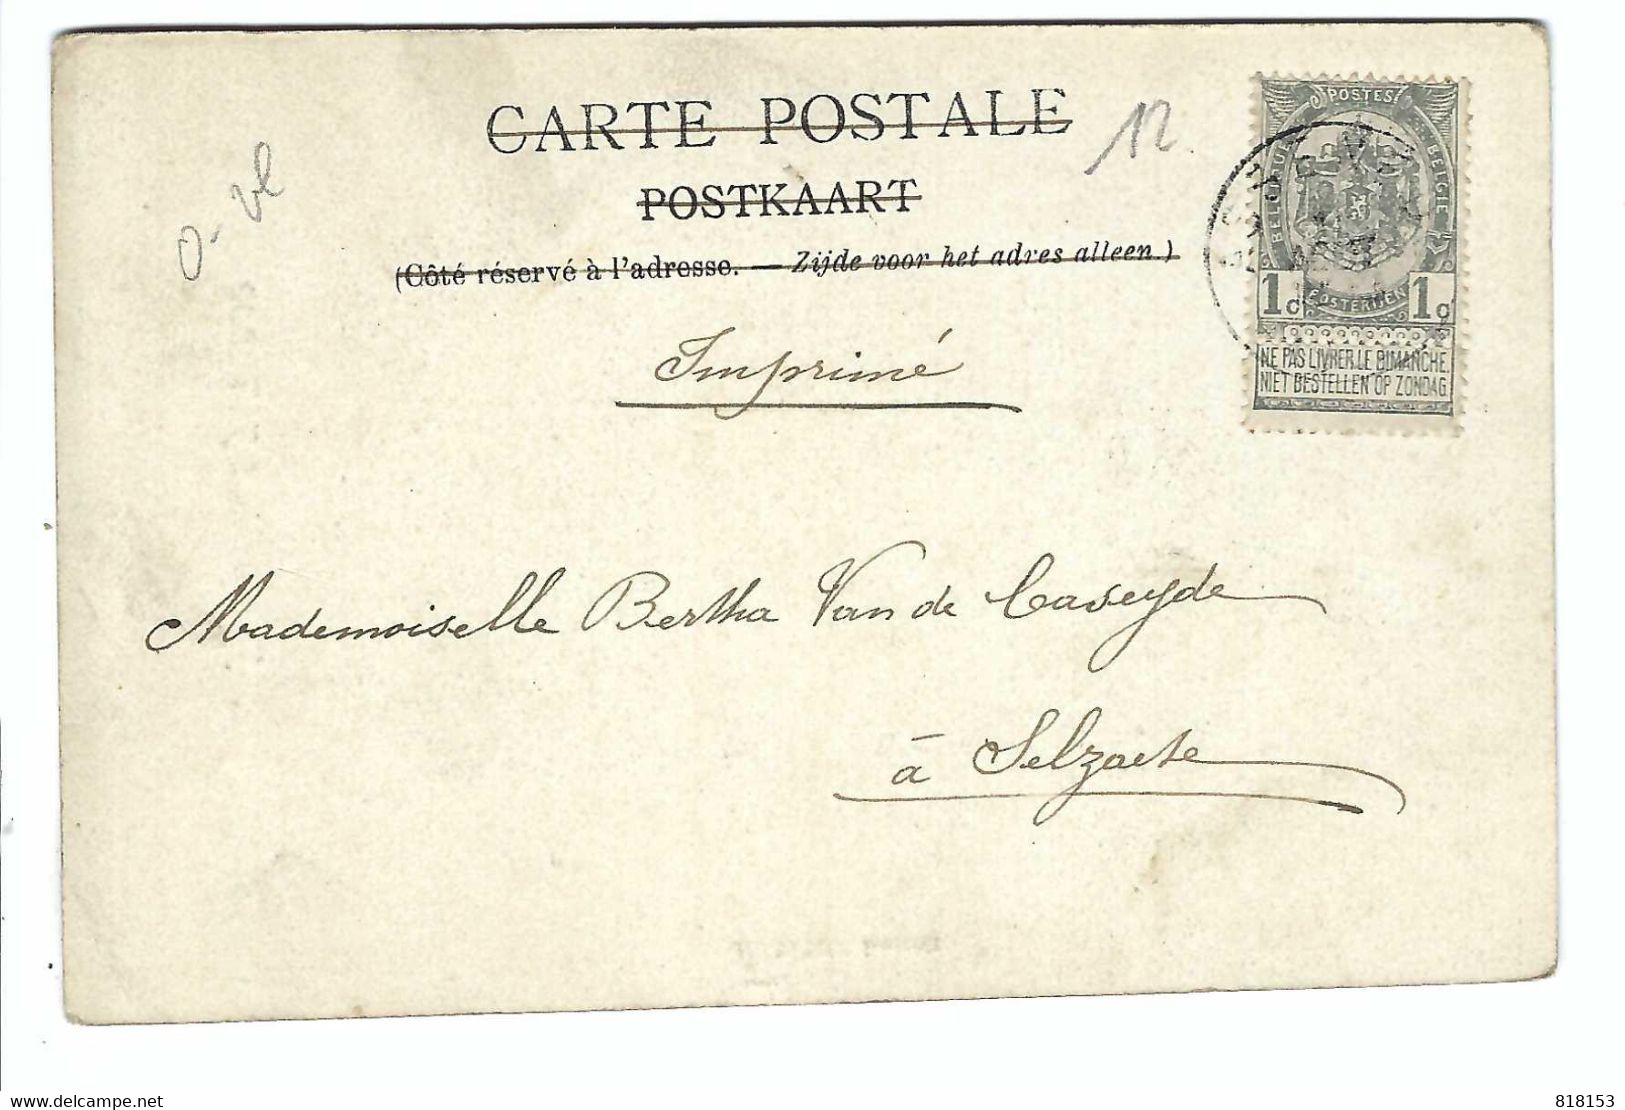 CARTE POSTALE
12
POSTKAART
O-Vl
(Côté réservé à l'adresse. — Zijde voor het adres alleen.)
POSTES
BELGIQUE BELGIË
POSTERIJEN
1c 1c
NE PAS LIVRER LE DIMANCHE
NIET BESTELLEN OP ZONDAG
Imprimé
Mademoiselle Bertha Van de Caseyde
à Selzaete
www.delcampe.net
818153